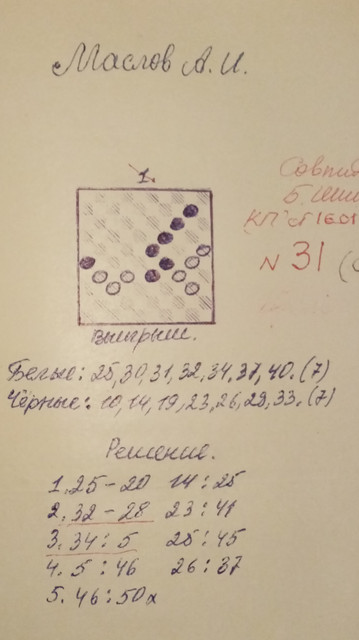 Маслов А.И.
1.
Совпад
Б. Шки
КП
N 31 (
Выигрыш.
Белые: 25,30,31,32,34,37,40.(7)
Чёрные: 10,14,19,23,26,29,33.(7)
Решение.
1. 25-20 14:25
2. 32-28 23:41
3. 34:5 25:45
4. 5:46 26:37
5. 46:50x